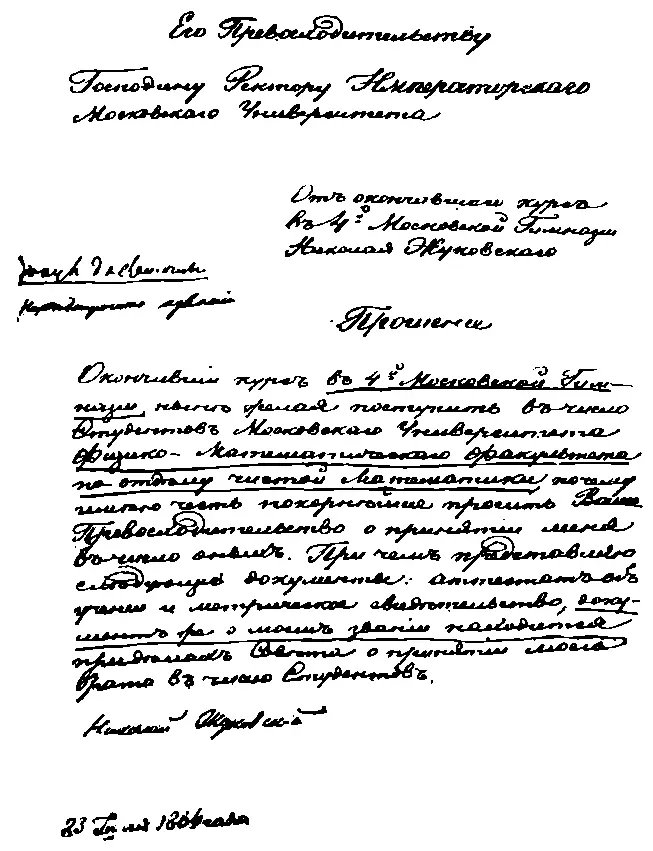 Его Превосходительству
Господину Ректору Императорского
Московского Университета
Отъ окончившаго курсъ
въ 4й Московской Гимназiи
Николая Жуковскаго
Прошенiе
Окончивши курсъ въ 4й Московской Гим-
назiи, ныне желая поступить въ число
Студентовъ Московскаго Университета
Физико-Математическаго Факультета
по отделу чистой Математики, почему
имею честь покорнейше просить Ваше
Превосходительство о принятiи меня
въ число оныхъ. При чемъ представляю
следующiе документы: аттестатъ объ
ученiи и метрическое свидетельство, доку-
ментъ же о моемъ званiи находится
при делахъ Совета о принятiи моего
брата въ число Студентовъ.
Николай Жуковскiй
23 Iюля 1864 года